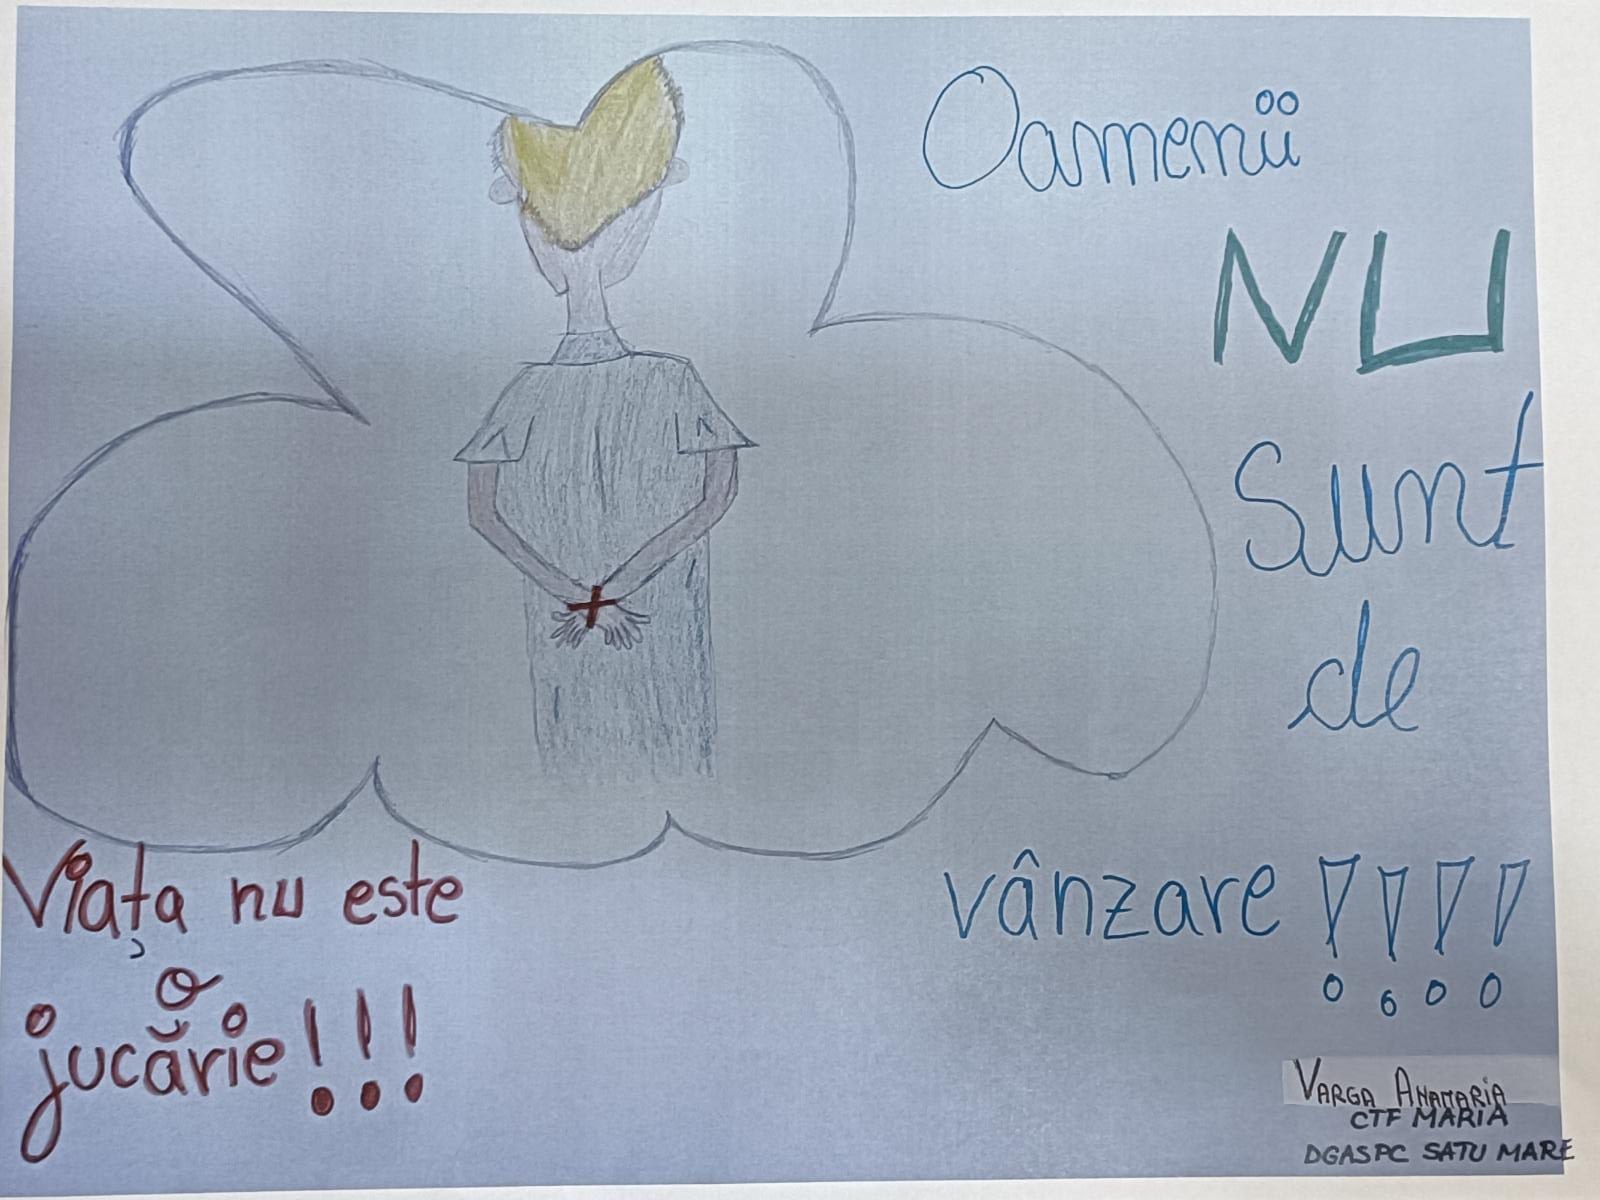 Oamenii
NU
Sunt
de
vânzare !!!!
Viața nu este
o
jucărie!!!
VARGA ANAMARIA
CTF MARIA
DGASPC SATU MARE